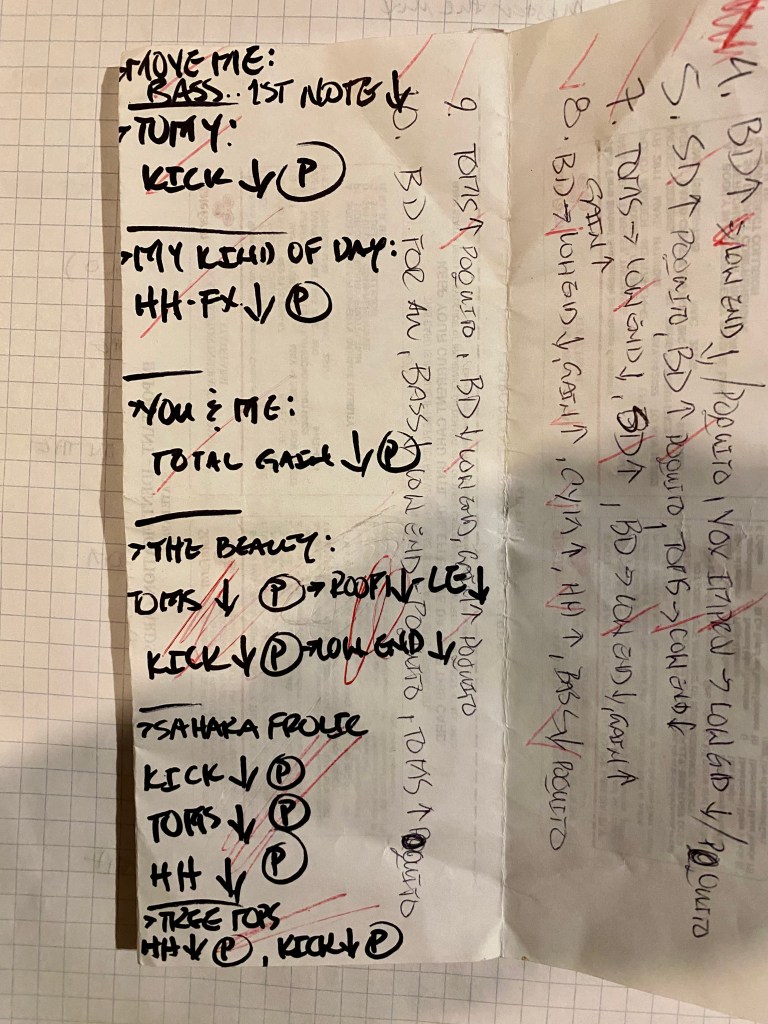 >MOVE ME:
BASS.. 1ST NOTE ↓
>TOMY:
KICK ↓ Ⓟ
>MY KIND OF DAY:
HH-FX ↓ Ⓟ
>YOU & ME:
TOTAL GAIN ↓ Ⓟ
>THE BEALEY:
TOMS ↓ Ⓟ→ROOM↓-LE↓
KICK ↓ Ⓟ→LOW END ↓
>SAHARA FROLIC
KICK ↓ Ⓟ
TOMS ↓ Ⓟ
HH ↓ Ⓟ
>TREE TOPS
HH↓ Ⓟ, KICK↓ Ⓟ
4. BD↑ LOW END ↓/POQUITO, VOX IMPROV → LOW END ↓/POQUITO
5. SD↑ POQUITO, BD↑ POQUITO, TOMS→LOW END↓
7. TOMS→ LOW END↓, BD↑, BD→LOW END↓, GAIN↑
GAIN↑
8. BD→LOW END↓, GAIN↑, CYM↑, HH↑, BASS↓ POQUITO
9. TOMS↑ POQUITO, BD↓ LOW END, GAIN↑ POQUITO
10. BD FOR AN, BASS↓ LOW END POQUITO, TOMS↑ POQUITO